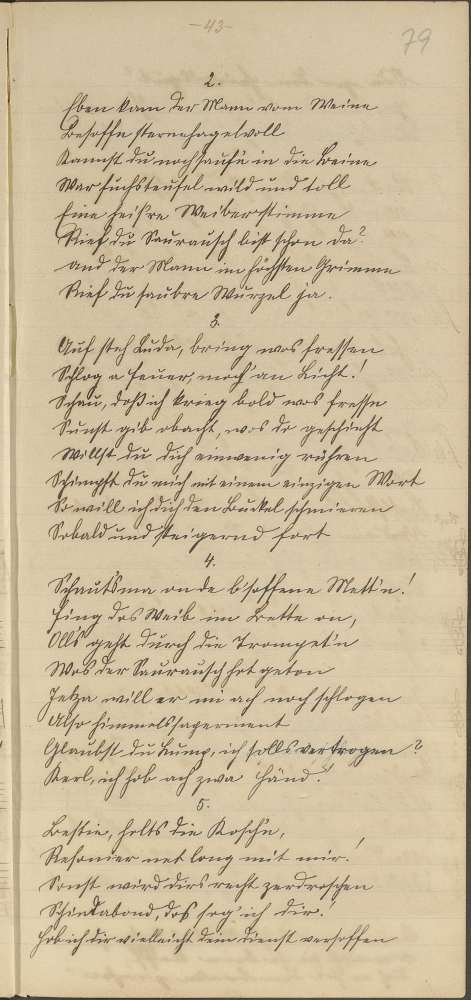 -43-
79
2.
Eben kam der Mann vom Weine
Besoffe sternehagelvoll
Kannst du noch saufe in die Beine
War fuchsteufel wild und toll
Eine heisre Weiberstimme
Rief du Saurausch bist schon da?
und der Mann im höchsten Grimme
Rief du saubre Wurzel ja.
3.
Auf steh Luda, bring wos fressen
Schlog a Feuer, moch' an Licht!
Schau, doß ich krieg bold wos fresse
Sunst gib obacht, wos do geschieht
Willst du dich einwenig rühren
Schimpfst du mich mit einem einzigen Wort
So will ich dich den Buckel schmieren
Sobald und steigernd fort
4.
Schaut's ma on de b'soffene Mett'n!
Fing dos Weib im Bette on,
Olls geht durch die Trompet'n
Wos der Saurausch hot geton
Jetza will er mi ach noch schlogen
Also Himmelssaperment
Glaubst du Lump, ich solls vertrogen?
Kerl, ich hob ach zwa Händ!
5.
Bestie, holts die Kosch'n,
Resonier net long mit mir!
Sonst wird dirs recht zerdroschen
Schindabond, dos sog' ich dir.
Hob ich dir vielleicht dein Dienst versoffen